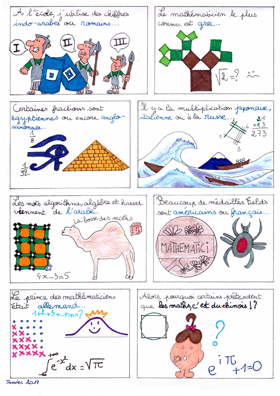 À l'école, j'utilise des chiffres
indo-arabes ou romains...
I
II
III
Le mathématicien le plus
connu est grec...
√2 = ?
Certaines fractions sont
égyptiennes ou encore anglo-
saxonnes...
1/8
Il y a la multiplication japonaise,
italienne ou à la russe.
21
273
Les mots algorithme, algèbre et hasard
viennent de l'arabe.
la bosse des maths
4x-3=5
Beaucoup de médailles Fields
sont américains ou français...
MATHEMATICI
Le prince des mathématiciens
était allemand...
1+2+3+...+n=?
∫e^{-x²}dx = √π
Alors pourquoi certains prétendent
que les maths c'est du chinois !?
?
e^{iπ}+1=0
Janvier 2018